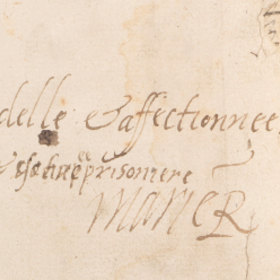 delle & affectionnee
& prisoniere
MARIE R